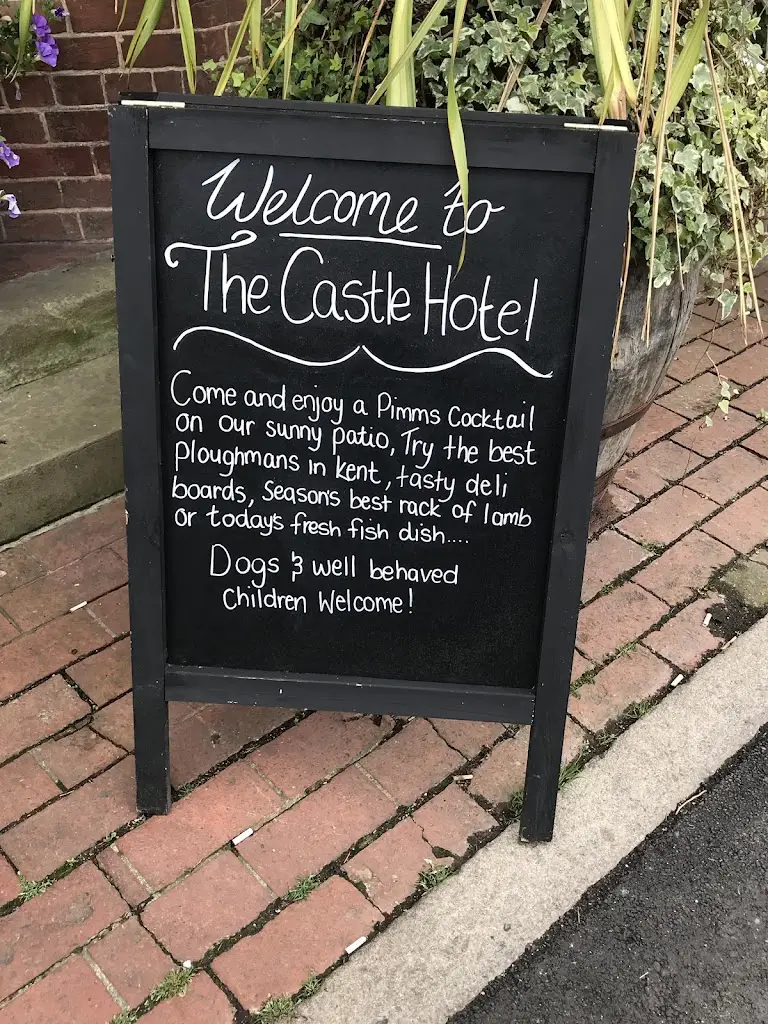 Welcome to
The Castle Hotel
Come and enjoy a Pimms Cocktail
on our sunny patio, Try the best
Ploughmans in Kent, tasty deli
boards, Seasons best rack of lamb
or todays fresh fish dish....
Dogs & well behaved
Children Welcome!